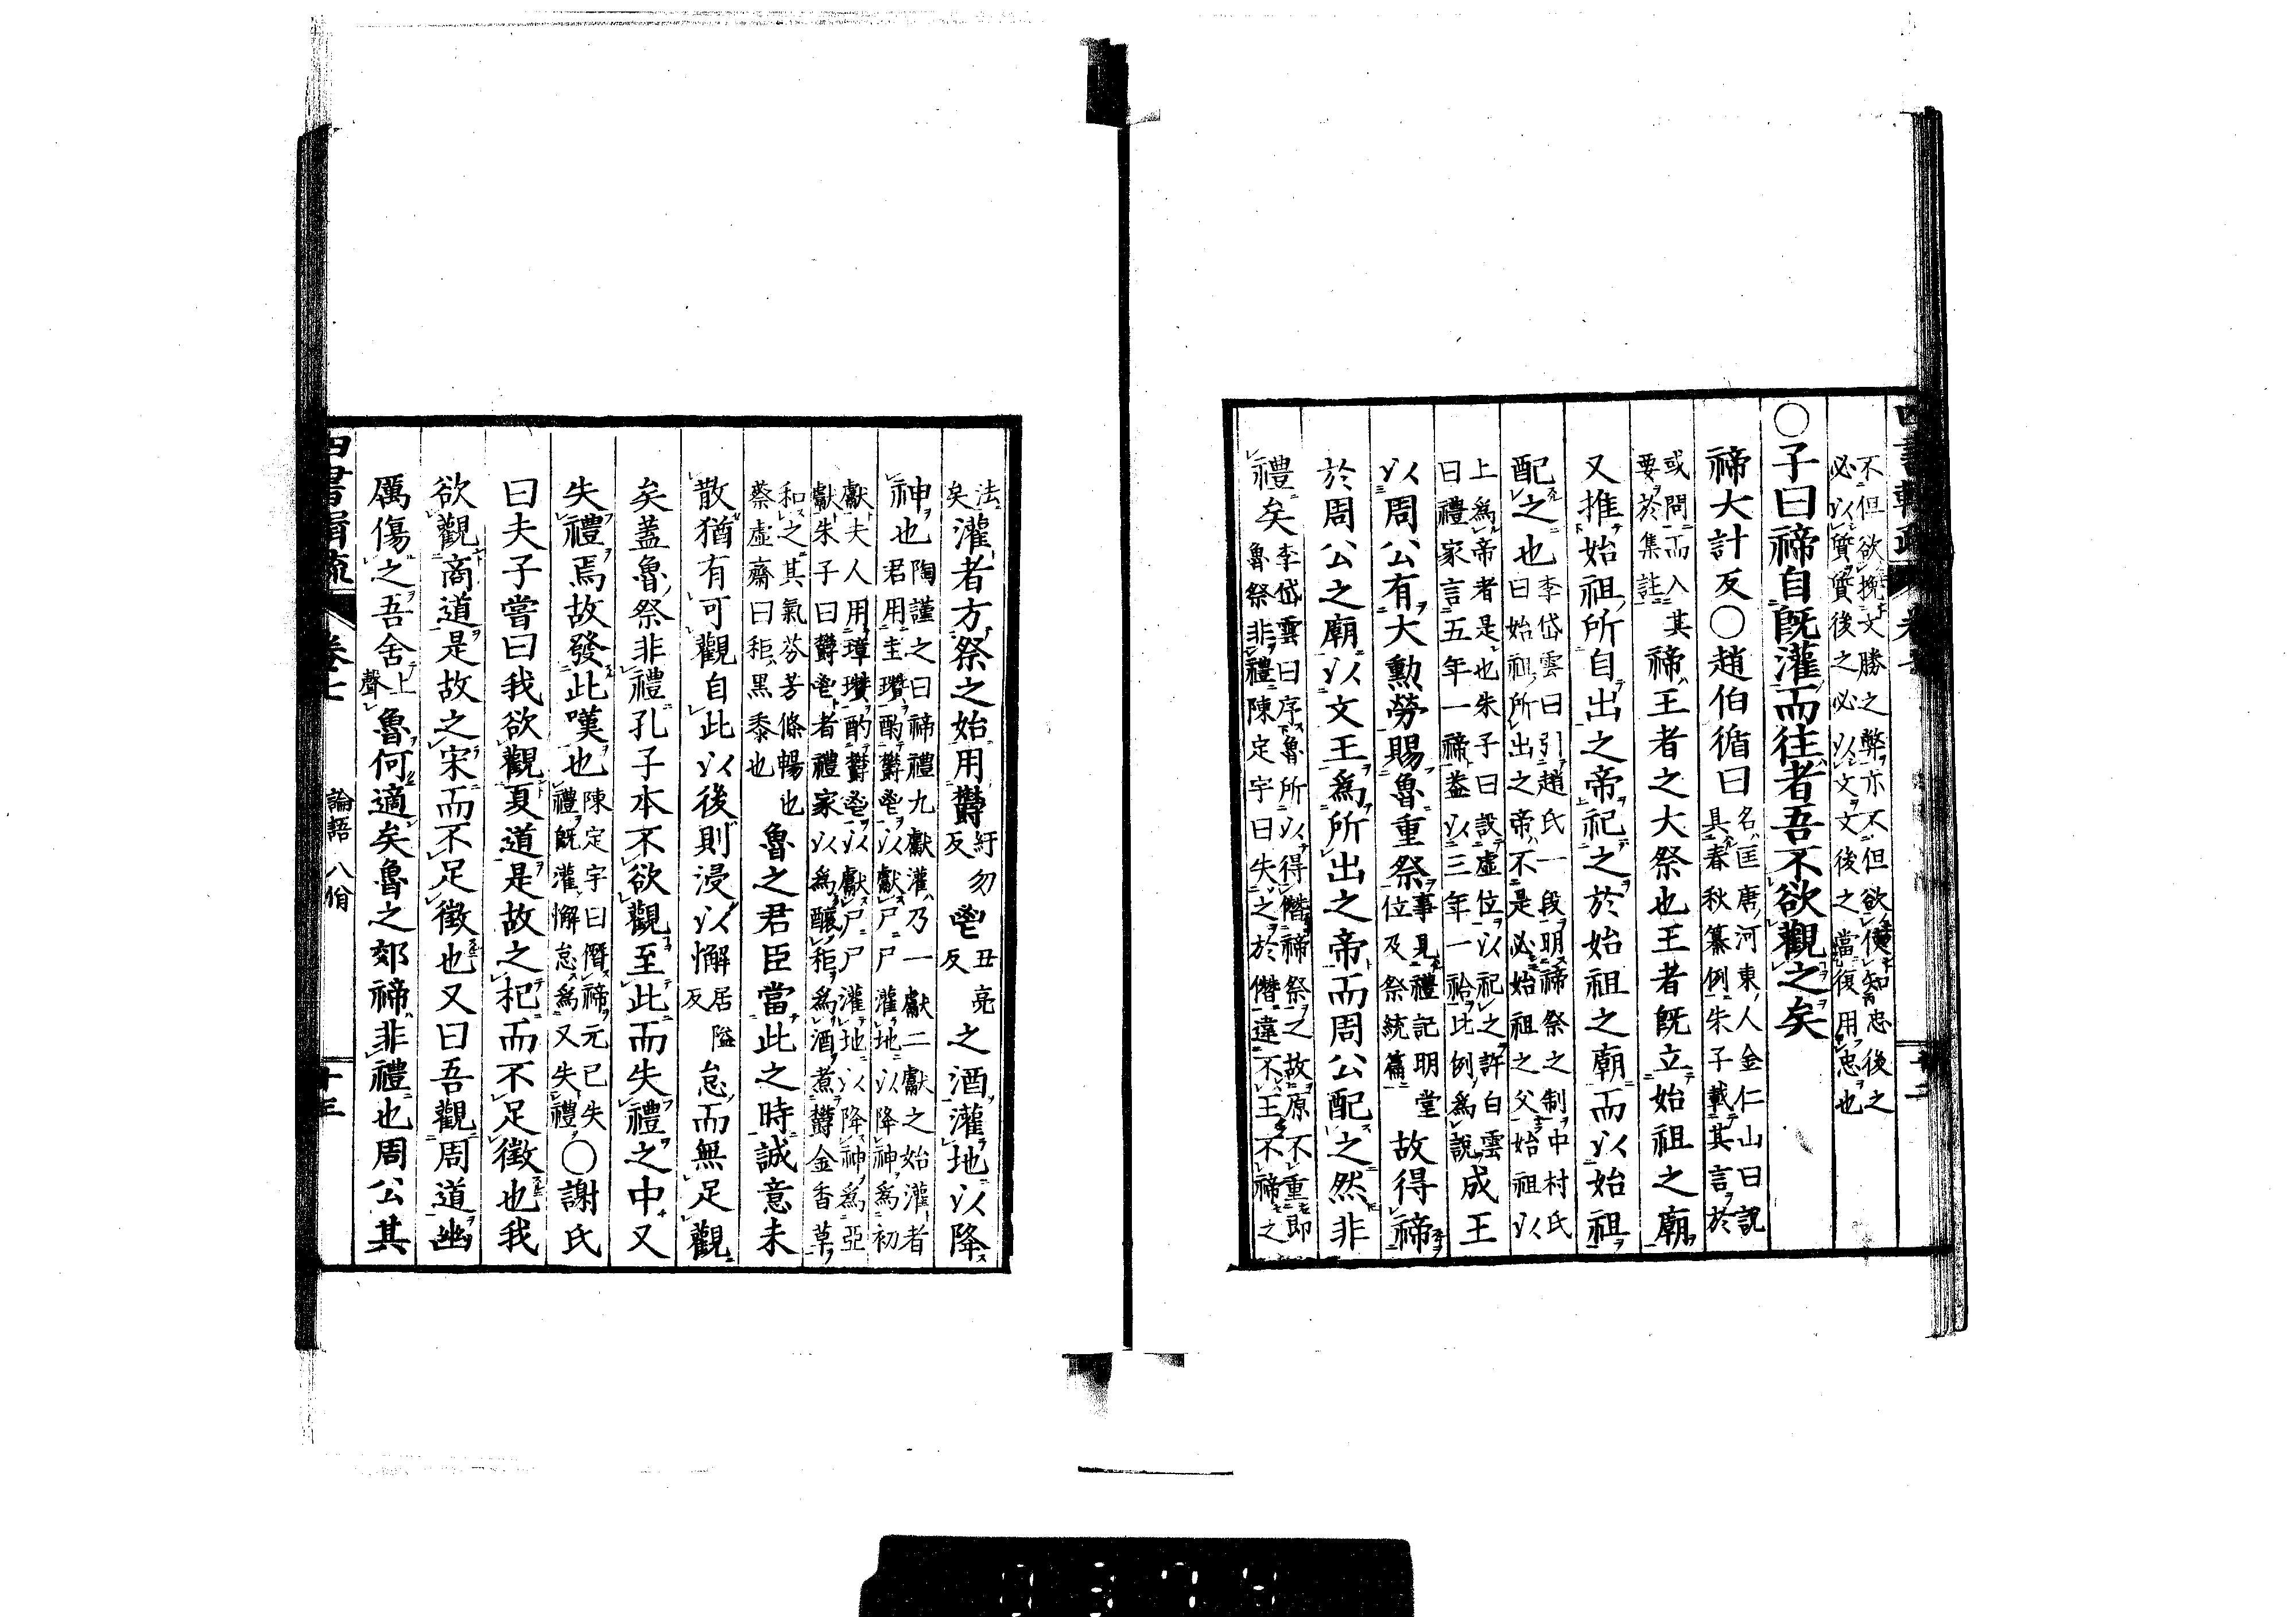 不但欲挽文勝之弊亦不但欲使知忠後之
必以質質後之必以文文後之當復用忠也
○子曰禘自既灌而往者吾不欲觀之矣
禘大計反○趙伯循曰名匡唐河東人金仁山曰説
具春秋纂例朱子載其言於
或問而入其
要於集註禘王者之大祭也王者既立始祖之廟
又推始祖所自出之帝祀之於始祖之廟而以始祖
配之也李岱雲曰引趙氏一段明禘祭之制中村氏
曰始祖所出之帝不是必始祖之父始祖以
上爲帝者是也朱子曰設虛位以祀之許白雲
曰禮家言五年一禘葢以三年一祫此例爲説成王
以周公有大勲勞賜魯重祭事見禮記明堂
位及祭統篇故得禘
於周公之廟以文王爲所出之帝而周公配之然非
禮矣李岱雲曰序魯所以得僭禘祭之故原不重即
魯祭非禮陳定宇曰失之於僭違不王不禘之
法
矣灌者方祭之始用欝紆勿
反鬯丑亮
反之酒灌地以降
神也陶謹之曰禘禮九獻灌乃一獻二獻之始灌者
君用圭瓚酌欝鬯以獻尸尸灌地以降神爲初
獻夫人用璋瓚酌欝鬯以獻尸尸灌地以降神爲亞
獻朱子曰欝鬯者禮家以爲釀秬爲酒煮欝金香草
和之其氣芬芳條暢也
蔡虛齋曰秬黒黍也魯之君臣當此之時誠意未
散猶有可觀自此以後則浸以懈居隘
反怠而無足觀
矣葢魯祭非禮孔子本不欲觀至此而失禮之中又
失禮焉故發此嘆也陳定宇曰僭禘元已失
禮既灌懈怠爲又失禮○謝氏
曰夫子嘗曰我欲觀夏道是故之杞而不足徵也我
欲觀商道是故之宋而不足徵也又曰吾觀周道幽
厲傷之吾舍上
聲魯何適矣魯之郊禘非禮也周公其
論語 八佾